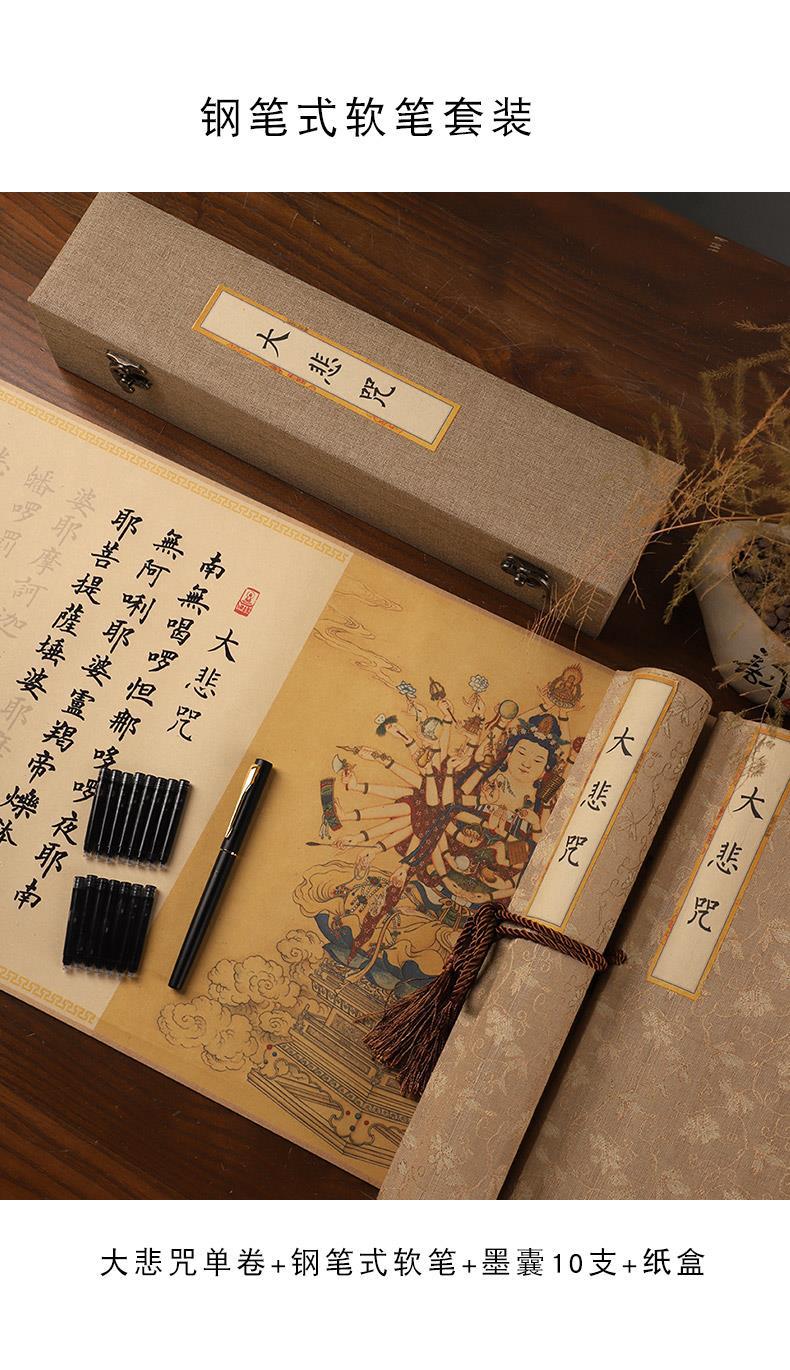 钢笔式软笔套装
大悲咒
大悲咒
南無喝啰怛那哆啰夜耶南
無阿唎耶婆盧羯帝爍鉢
耶菩提薩埵婆耶
婆耶摩訶迦
皤啰罰
大悲咒
大悲咒
大悲咒单卷+钢笔式软笔+墨囊10支+纸盒